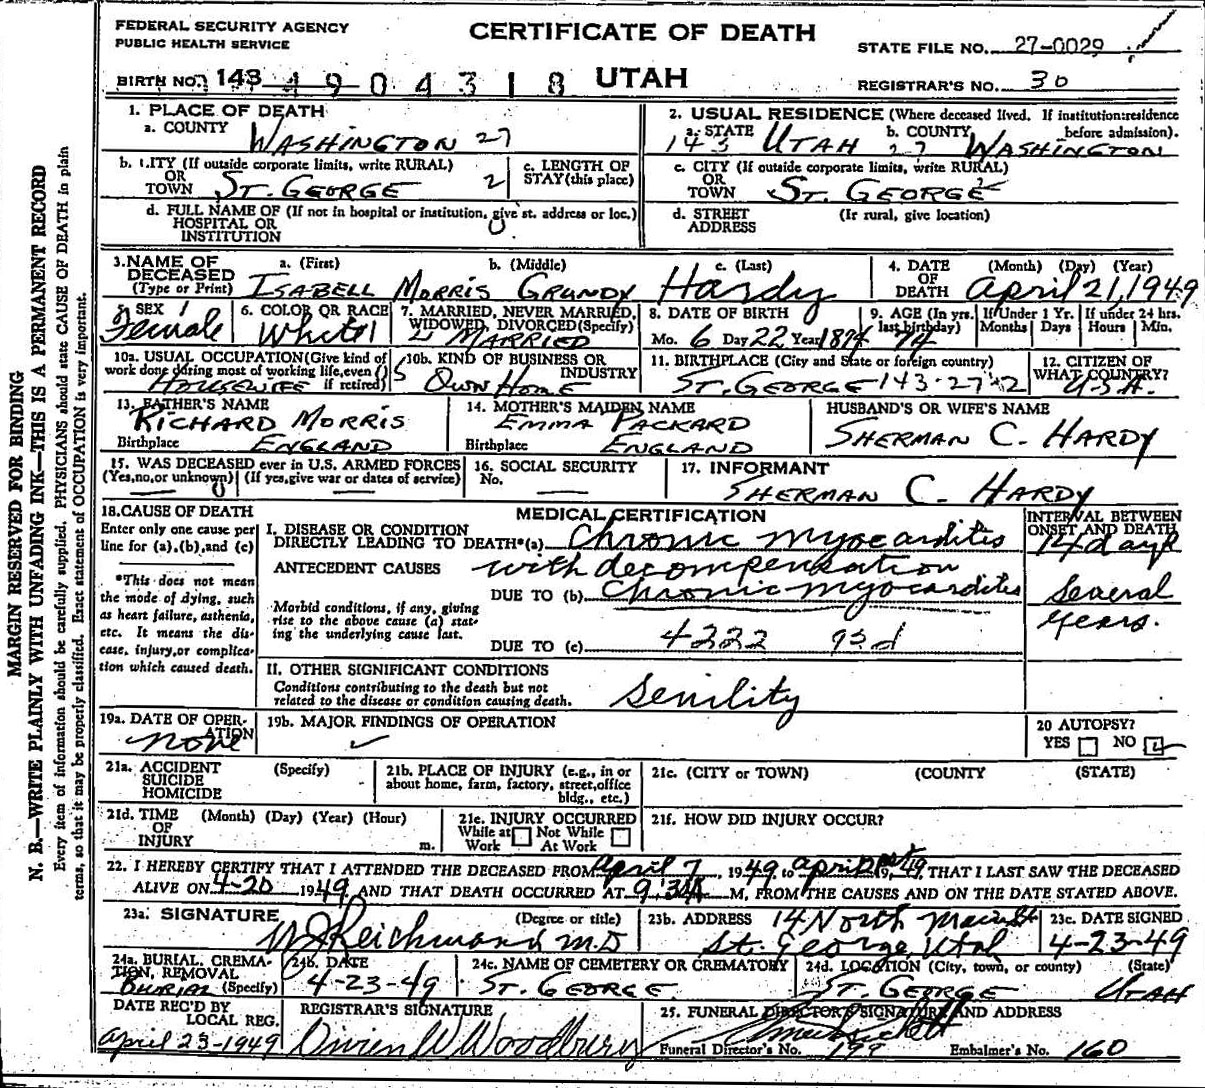 FEDERAL SECURITY AGENCY
PUBLIC HEALTH SERVICE
CERTIFICATE OF DEATH
STATE FILE NO. 27-0029
BIRTH NO. 143 4904318 UTAH
REGISTRAR'S NO. 30
1. PLACE OF DEATH
a. COUNTY WASHINGTON 27
2. USUAL RESIDENCE (Where deceased lived. If institution: residence before admission).
a. STATE 143 UTAH b. COUNTY 27 WASHINGTON
b. CITY (If outside corporate limits, write RURAL)
OR
TOWN ST. GEORGE 2
c. LENGTH OF
STAY (this place)
c. CITY (If outside corporate limits, write RURAL)
OR
TOWN ST. GEORGE 2
d. FULL NAME OF (If not in hospital or institution, give st. address or loc.)
HOSPITAL OR
INSTITUTION
0
d. STREET (If rural, give location)
ADDRESS
3. NAME OF
DECEASED
(Type or Print)
a. (First) b. (Middle) c. (Last)
ISABELL MORRIS GRUNDY Hardy
4. DATE
OF
DEATH
(Month) (Day) (Year)
April 21, 1949
5. SEX 1
Female
6. COLOR OR RACE
White 1
7. MARRIED, NEVER MARRIED,
WIDOWED, DIVORCED (Specify)
MARRIED
8. DATE OF BIRTH
Mo. 6 Day 22 Year 1874
9. AGE (In yrs. last birthday) 74
If Under 1 Yr.
Months Days
If under 24 hrs.
Hours Min.
10a. USUAL OCCUPATION (Give kind of
work done during most of working life, even
if retired)
HOUSEWIFE
10b. KIND OF BUSINESS OR
INDUSTRY
OWN HOME
11. BIRTHPLACE (City and State or foreign country)
ST. GEORGE 143-27-2
12. CITIZEN OF
WHAT COUNTRY?
U.S.A.
13. FATHER'S NAME
RICHARD MORRIS
Birthplace ENGLAND
14. MOTHER'S MAIDEN NAME
EMMA PACKARD
Birthplace ENGLAND
HUSBAND'S OR WIFE'S NAME
SHERMAN C. HARDY
15. WAS DECEASED ever in U.S. ARMED FORCES
(Yes, no, or unknown) (If yes, give war or dates of service)
— 0 —
16. SOCIAL SECURITY
No. —
17. INFORMANT
SHERMAN C. HARDY
18. CAUSE OF DEATH
Enter only one cause per
line for (a), (b), and (c)
*This does not mean
the mode of dying, such
as heart failure, asthenia,
etc. It means the dis-
ease, injury, or complica-
tion which caused death.
MEDICAL CERTIFICATION
I. DISEASE OR CONDITION
DIRECTLY LEADING TO DEATH*(a) Chronic myocarditis
ANTECEDENT CAUSES with decompensation
DUE TO (b) Chronic myocarditis
Morbid conditions, if any, giving
rise to the above cause (a) stat-
ing the underlying cause last.
DUE TO (c) 4222 93d
INTERVAL BETWEEN
ONSET AND DEATH
14 days
Several
years.
II. OTHER SIGNIFICANT CONDITIONS
Conditions contributing to the death but not
related to the disease or condition causing death.
Senility
19a. DATE OF OPER-
ATION
none
19b. MAJOR FINDINGS OF OPERATION
20 AUTOPSY?
YES NO
21a. ACCIDENT (Specify)
SUICIDE
HOMICIDE
21b. PLACE OF INJURY (e.g., in or
about home, farm, factory, street, office
bldg., etc.)
21c. (CITY or TOWN) (COUNTY) (STATE)
21d. TIME (Month) (Day) (Year) (Hour)
OF
INJURY m.
21e. INJURY OCCURRED
While at Not While
Work At Work
21f. HOW DID INJURY OCCUR?
22. I HEREBY CERTIFY THAT I ATTENDED THE DECEASED FROM April 7, 1949 to April 21st, 1949, THAT I LAST SAW THE DECEASED
ALIVE ON 4-20 1949, AND THAT DEATH OCCURRED AT 9:34A M., FROM THE CAUSES AND ON THE DATE STATED ABOVE.
23a. SIGNATURE (Degree or title)
Reichmann M.D
23b. ADDRESS 14 North Main St
St. George, Utah
23c. DATE SIGNED
4-23-49
24a. BURIAL, CREMA-
TION, REMOVAL
(Specify)
BURIAL
24b. DATE
4-23-49
24c. NAME OF CEMETERY OR CREMATORY
ST. GEORGE
24d. LOCATION (City, town, or county) (State)
ST. GEORGE UTAH
DATE REC'D BY
LOCAL REG.
April 23-1949
REGISTRAR'S SIGNATURE
Vivien W Woodbury
25. FUNERAL DIRECTOR'S SIGNATURE AND ADDRESS
Funeral Director's No. 199 Embalmer's No. 160
MARGIN RESERVED FOR BINDING
N. B.—WRITE PLAINLY WITH UNFADING INK—THIS IS A PERMANENT RECORD
Every item of information should be carefully supplied. PHYSICIANS should state CAUSE OF DEATH in plain
terms, so that it may be properly classified. Exact statement of OCCUPATION is very important.